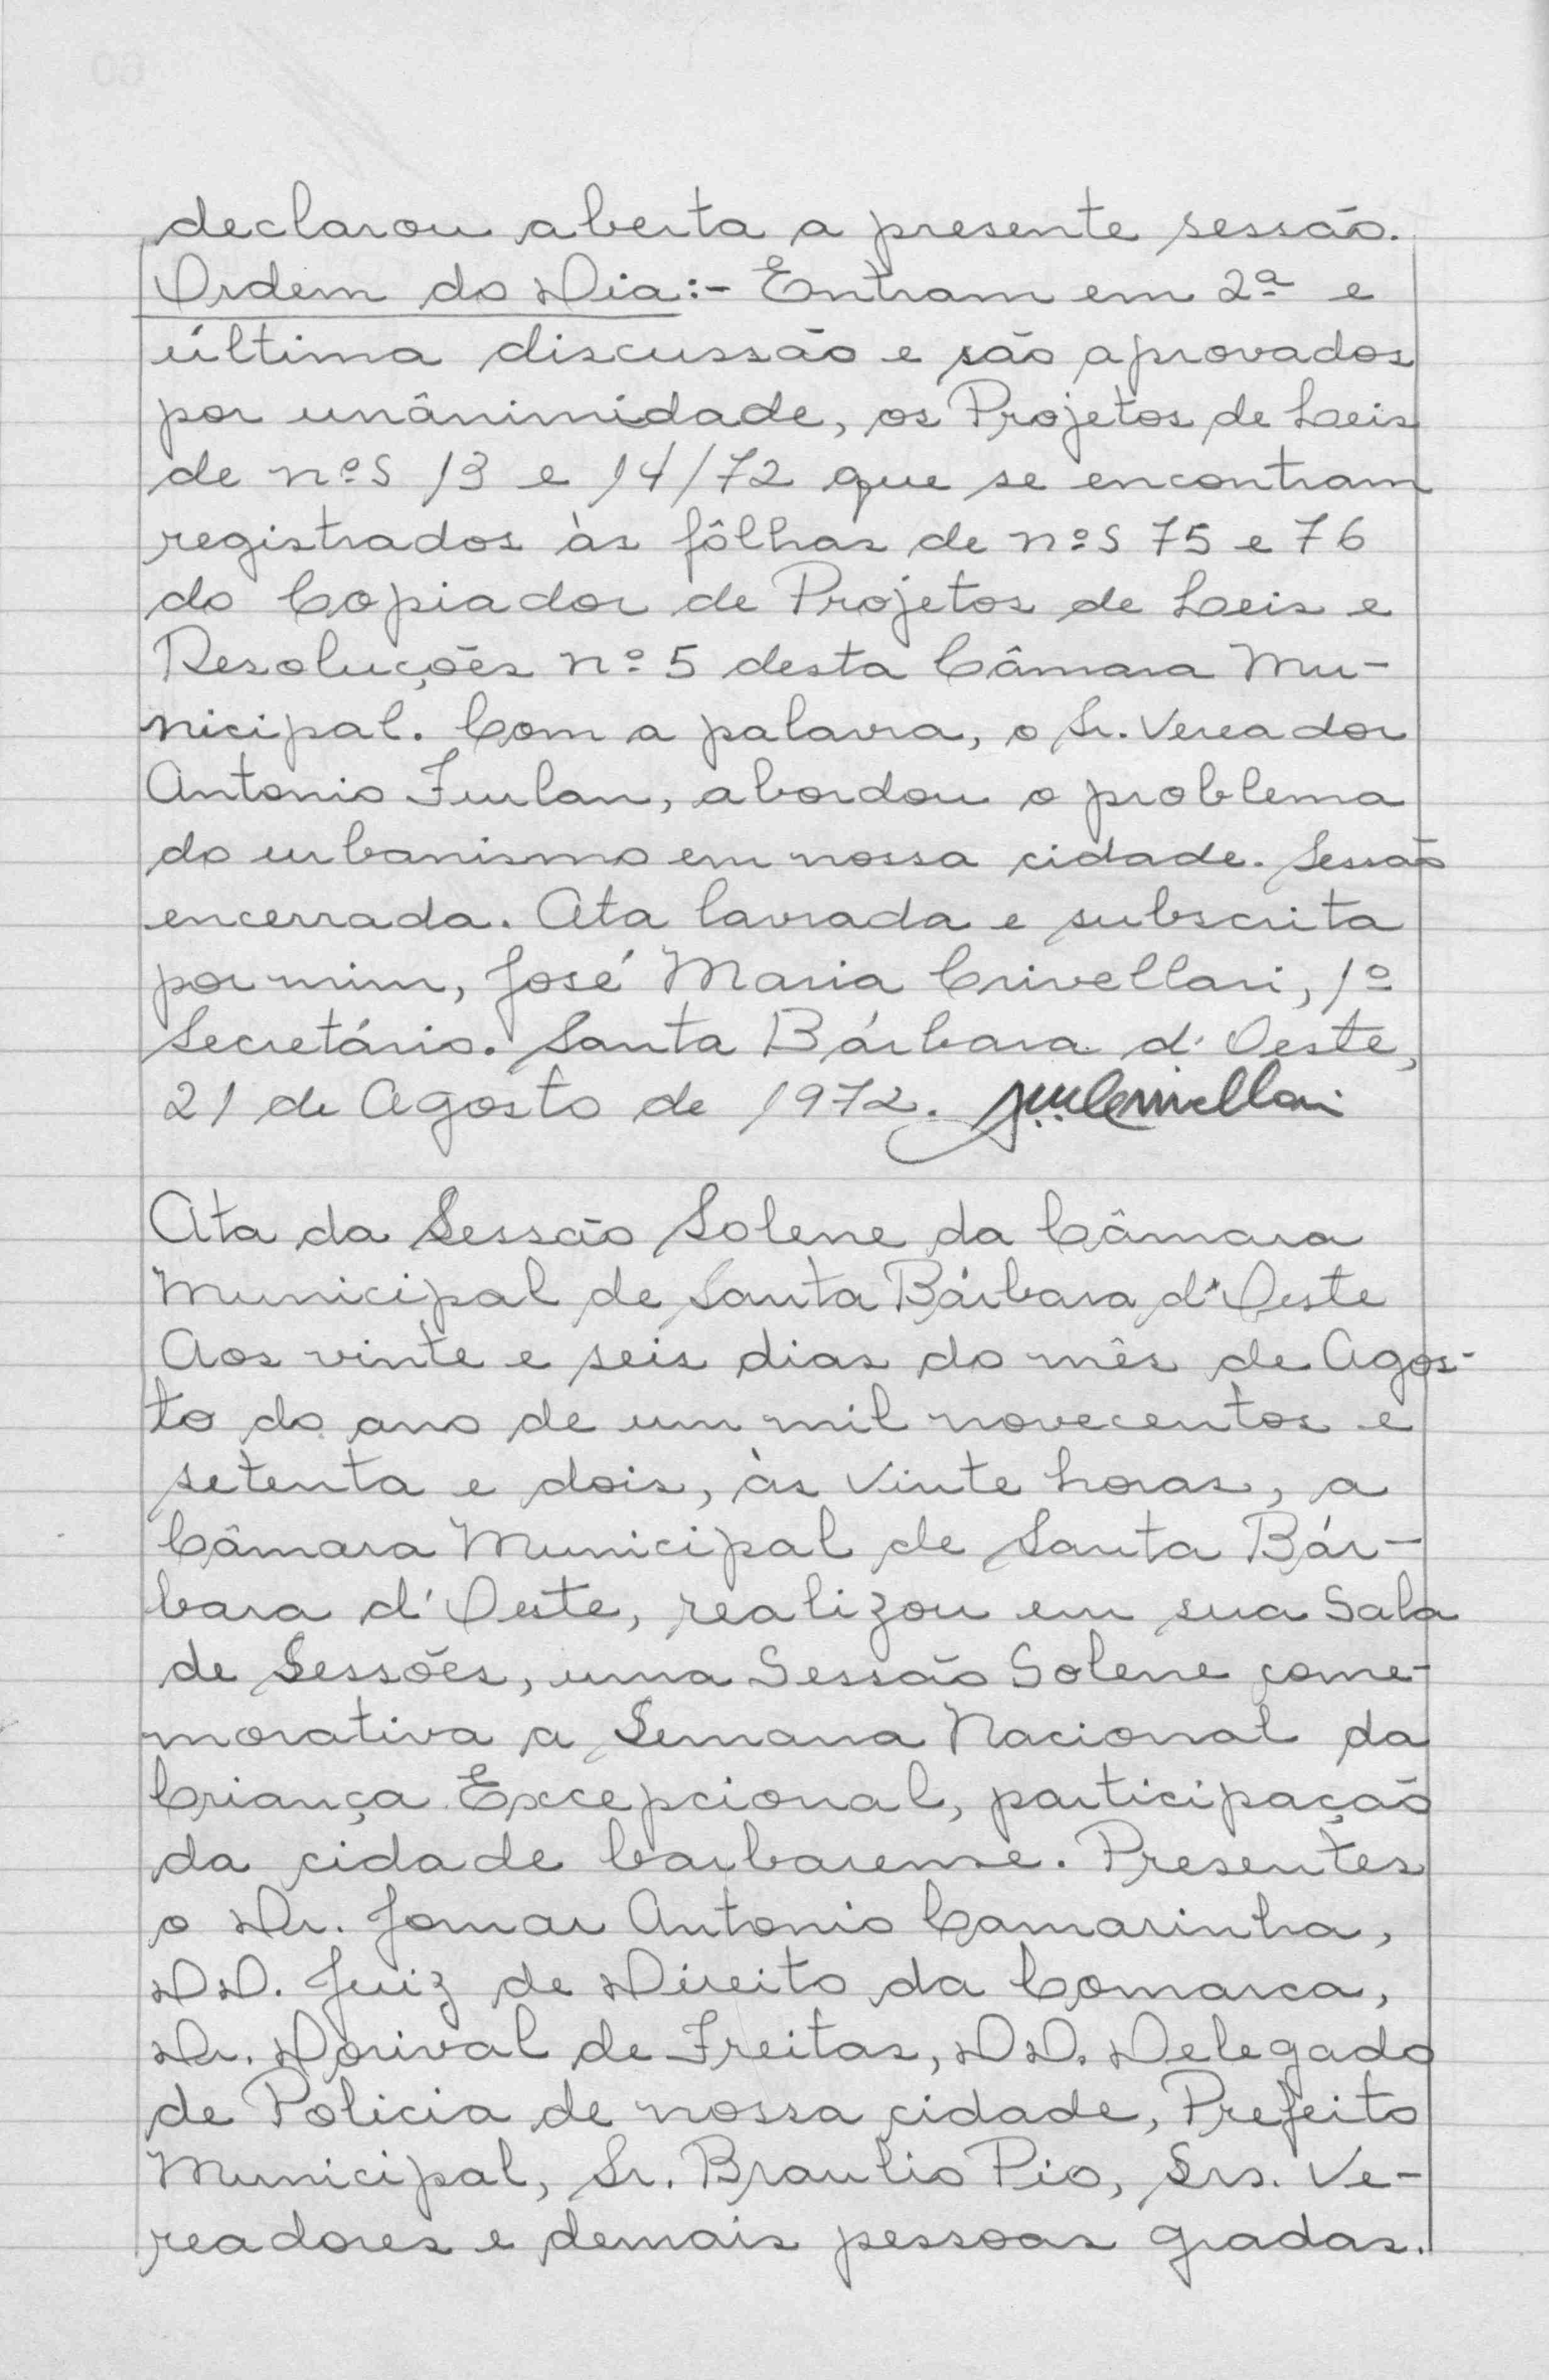 declarou aberta a presente sessão.
Ordem do Dia:- Entram em 2ª e
última discussão e são aprovados
por unânimidade, os Projetos de Leis
de nºs 13 e 14/72 que se encontram
registrados às fôlhas de nºs 75 e 76
do Copiador de Projetos de Leis e
Resoluções nº 5 desta Câmara Mu-
nicipal. Com a palavra, o Sr. Vereador
Antonio Furlan, abordou o problema
do urbanismo em nossa cidade. Sessão
encerrada. Ata lavrada e subscrita
por mim, José Maria Crivellari, 1º
Secretário. Santa Bárbara d'Oeste,
21 de Agosto de 1972. J.M.Crivellari
Ata da Sessão Solene da Câmara
Municipal de Santa Bárbara d'Oeste
Aos vinte e seis dias do mês de Agos-
to do ano de um mil novecentos e
setenta e dois, às vinte horas, a
Câmara Municipal de Santa Bár-
bara d'Oeste, realizou em sua Sala
de Sessões, uma Sessão Solene come-
morativa a Semana Nacional da
Criança Excepcional, participação
da cidade barbarense. Presentes
o Dr. Jomar Antonio Camarinha,
DD. Juiz de Direito da Comarca,
Dr. Dorival de Freitas, DD. Delegado
de Policia de nossa cidade, Prefeito
Municipal, Sr. Braulio Pio, Srs. Ve-
readores e demais pessoas gradas.